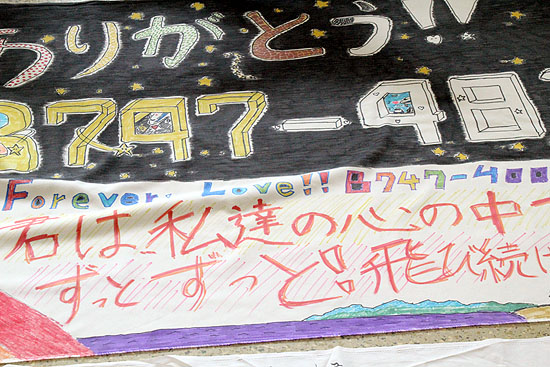 ありがとう!!
B747-48
Forever, Love!! B747-400
君は、私達の心の中で
ずっとずっと!飛び続け